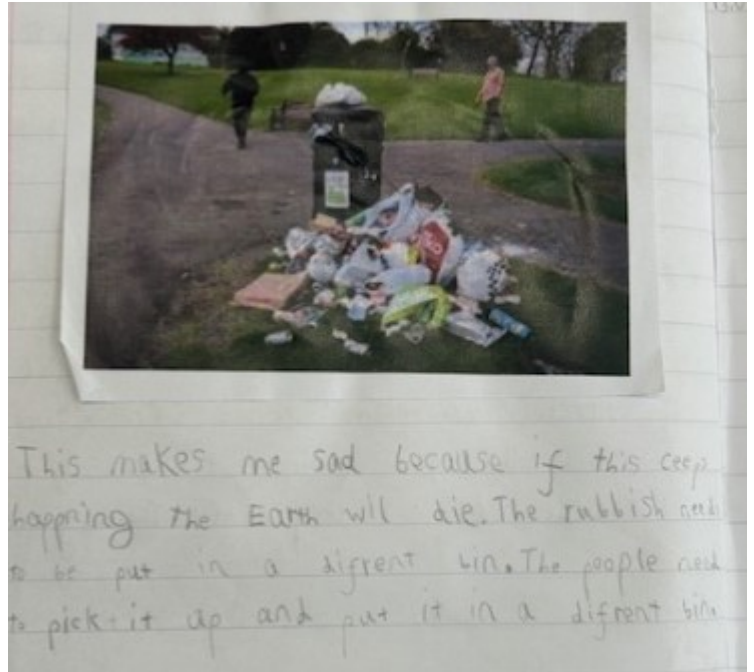 This makes me sad because if this ceep
happning the Earth wil die. The rubbish needs
to be put in a difrent bin. The people need
to pick it up and put it in a difrent bin.